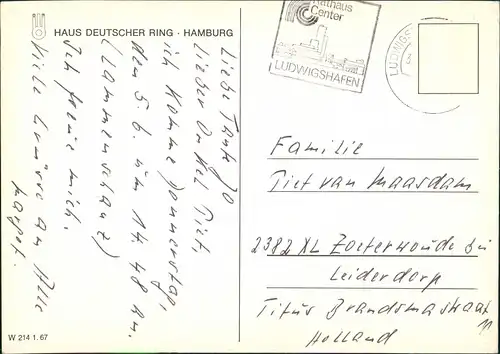 HAUS DEUTSCHER RING · HAMBURG
Liebe Tante Jo
Lieber Onkel Piet,
ich komme Donnerstag,
den 5.6. um 14.48 an.
Ich freue mich.
Viele Grüsse an Alle
Margot.
Rathaus
Center
LUDWIGSHAFEN
LUDWIGS
Familie
Piet van Maasdam
2382 XL Zoeterwoude bei
Leiderdorp
Titus Brandsma straat
11
Holland
W 214 1.67